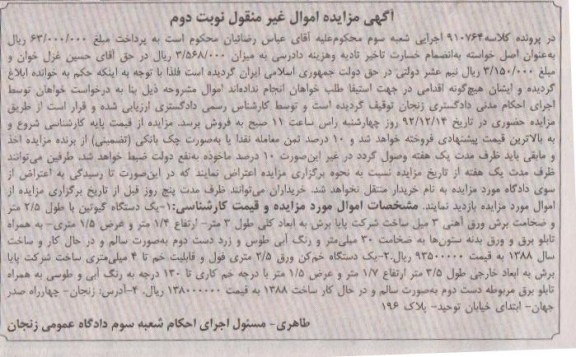 آگهی مزایده اموال غیر منقول نوبت دوم
در پرونده کلاسه ۹۱۰۷۶۴ اجرایی شعبه سوم محکوم‌علیه آقای عباس رضائیان محکوم است به پرداخت مبلغ ۶۳/۰۰۰/۰۰۰ ریال
به‌عنوان اصل خواسته به‌انضمام خسارت تاخیر تادیه وهزینه دادرسی به میزان ۳/۵۶۸/۰۰۰ ریال در حق آقای حسین غزل خوان و
مبلغ ۳/۱۵۰/۰۰۰ ریال نیم عشر دولتی در حق دولت جمهوری اسلامی ایران گردیده است فلذا با توجه به اینکه حکم به خوانده ابلاغ
گردیده و ایشان هیچ‌گونه اقدامی در جهت استیفا طلب خواهان انجام نداده‌اند اموال مشروحه ذیل بنا به درخواست خواهان توسط
اجرای احکام مدنی دادگستری زنجان توقیف گردیده است و توسط کارشناس رسمی دادگستری ارزیابی شده و قرار است از طریق
مزایده حضوری در تاریخ ۹۲/۱۲/۱۴ روز چهارشنبه راس ساعت ۱۱ صبح به فروش برسد. مزایده از قیمت پایه کارشناسی شروع و
به بالاترین قیمت پیشنهادی فروخته خواهد شد و ۱۰ درصد ثمن معامله نقدا یا به‌صورت چک بانکی (تضمینی) از برنده مزایده اخذ
و مابقی باید ظرف مدت یک هفته وصول گردد در غیر این‌صورت ۱۰ درصد ماخوذه به‌نفع دولت ضبط خواهد شد. طرفین می‌توانند
ظرف مدت یک هفته از تاریخ مزایده نسبت به نحوه برگزاری مزایده اعتراض نمایند که در این‌صورت تا رسیدگی به اعتراض از
سوی دادگاه مورد مزایده به نام خریدار منتقل نخواهد شد. خریداران می‌توانند ظرف مدت پنج روز قبل از تاریخ برگزاری مزایده از
اموال مورد مزایده بازدید نمایند. مشخصات اموال مورد مزایده و قیمت کارشناسی: ۱-یک دستگاه گیوتین با طول ۲/۵ متر
و ضخامت برش ورق آهنی ۳ میل ساخت شرکت پایا برش به ابعاد کلی طول ۳ متر- ارتفاع ۱/۴ متر و عرض ۱/۵ متری- به همراه
تابلو برق و ورق بدنه ستون‌ها به ضخامت ۳۰ میلی‌متر و رنگ آبی طوس و زرد دست دوم به‌صورت سالم و در حال کار و ساخت
سال ۱۳۸۸ به قیمت ۹۳۵۰۰۰۰۰ ریال.۲-یک دستگاه خم‌کن ورق ۲/۵ متری فول و قابلیت خم تا ۴ میلی‌متری ساخت شرکت پایا
برش به ابعاد خارجی طول ۳/۵ متر ارتفاع ۱/۷ متر و عرض ۱/۵ متر با درجه خم کاری تا ۱۳۰ درجه به رنگ آبی و طوسی به همراه
تابلو برق مربوطه دست دوم به‌صورت سالم و در حال کار ساخت ۱۳۸۸ به قیمت ۱۳۸۰۰۰۰۰۰ ریال. ۴-آدرس: زنجان- چهارراه صدر
جهان- ابتدای خیابان توحید- پلاک ۱۹۶
طاهری- مسئول اجرای احکام شعبه سوم دادگاه عمومی زنجان